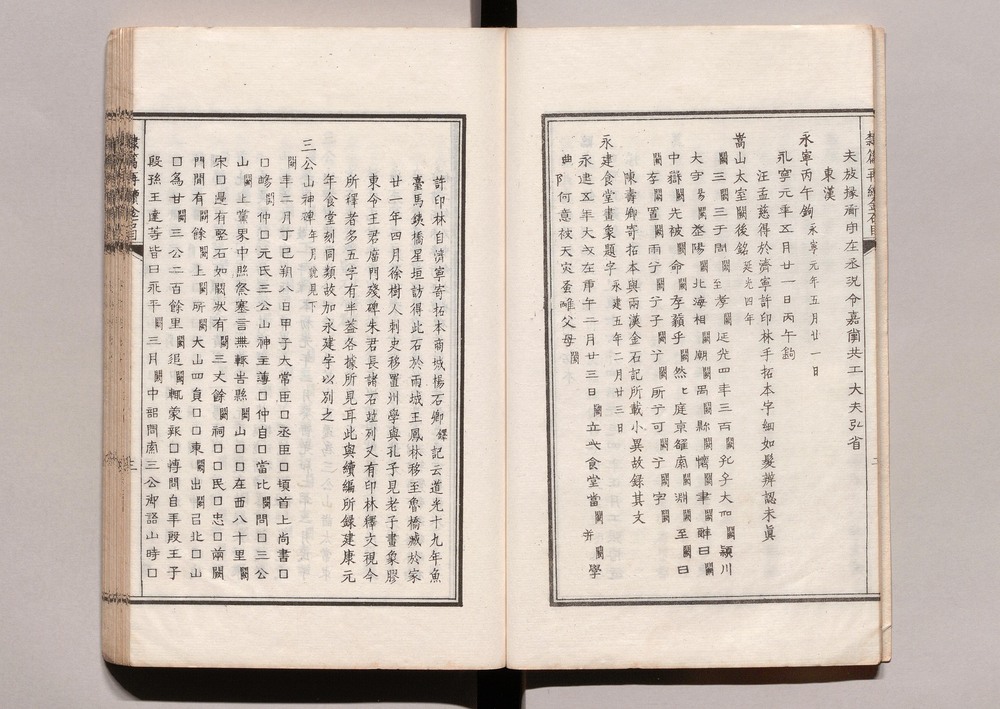 隸篇再續金石目
夫放掾濟守在丞況令嘉圉共工大夫弘省
東漢
永寧丙午鉤永寧元年五月廿一日
永寧元年五月廿一日丙午鉤
汪孟慈得於濟寧許印林手拓本字細如髮辨認未眞
嵩山太室闕後銘延光四年
闕三闕三于闕至孝闕延光四年三百闕孔子大闕潁川
大守闕闕北海相闕廟闕禺闕縣闕懷闕聿闕辭曰闕
中嶽闕先被闕命闕孝闕然闕庭京雒闕淵闕至闕曰
闕李闕置闕雨闕子闕所闕可闕字闕
陳壽卿寄拓本與兩漢金石記所載小異故録其文
永建食堂畫象題字永建五年二月廿三日
永建五年大歲在庚午二月廿三日闕立食堂當闕并闕學
曲闕何意被天災蚤離父母闕
許印林自濟寧寄拓本商城楊石卿鐸記云道光十九年魚
臺馬鐵橋星垣訪得此石於兩城王鳳林移至魯橋臧於家
廿一年四月徐樹人刺史移置州學與孔子見老子畫象膠
東令王君廟門殘碑朱君長諸石竝列又有印林釋文視今
所釋者多五字有半葢各據所見耳此與續編所録建康元
年食堂刻同類故加永建字以別之
三公山神碑年月說見下
闕年二月丁巳朔八日甲子大常臣口丞臣口頓首上尚書口
口闕仲口元氏三公山神主薄口仲自口當比闕問口三公
山闕上黨界中縣祭塞言無輒闕縣闕山口口在西八十里闕
宋口邊有堅石如闕狀有闕三丈餘闕祠口口民口忠口兩闕
門闕有闕餘闕上闕所闕大山四負口口東闕出闕呂北口山
口為甘闕三公二百餘里闕闕輒蒙報口愽問自闕殷王子
殷孫王達等皆曰永平闕三月闕中詔問索三公御語山時口
隸篇再續金石目
三